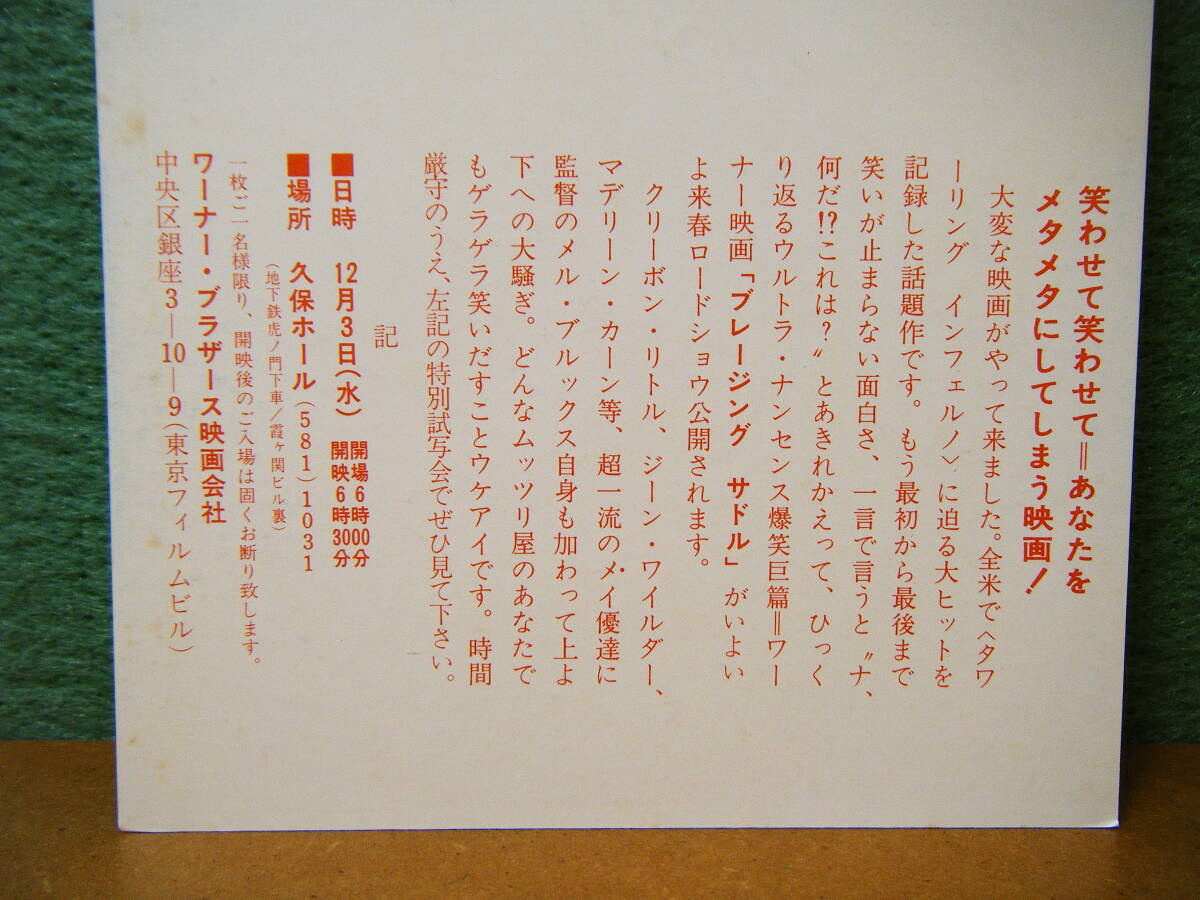 笑わせて笑わせて＝あなたを
メタメタにしてしまう映画！
大変な映画がやって来ました。全米で〈タワ
ーリング　インフェルノ〉に迫る大ヒットを
記録した話題作です。もう最初から最後まで
笑いが止まらない面白さ、一言で言うと〝ナ、
何だ!?これは？〟とあきれかえって、ひっく
り返るウルトラ・ナンセンス爆笑巨篇＝ワー
ナー映画「ブレージング　サドル」がいよい
よ来春ロードショウ公開されます。
クリーボン・リトル、ジーン・ワイルダー、
マデリーン・カーン等、超一流のメイ優達に
監督のメル・ブルックス自身も加わって上よ
下への大騒ぎ。どんなムッツリ屋のあなたで
もゲラゲラ笑いだすことウケアイです。時間
厳守のうえ、左記の特別試写会でぜひ見て下さい。
記
■日時　12月3日(水)　開場6時00分
開映6時30分
■場所　久保ホール(581)1031
(地下鉄虎ノ門下車／霞ヶ関ビル裏)
一枚ご一名様限り、開映後のご入場は固くお断り致します。
ワーナー・ブラザース映画会社
中央区銀座3―10―9(東京フィルムビル)